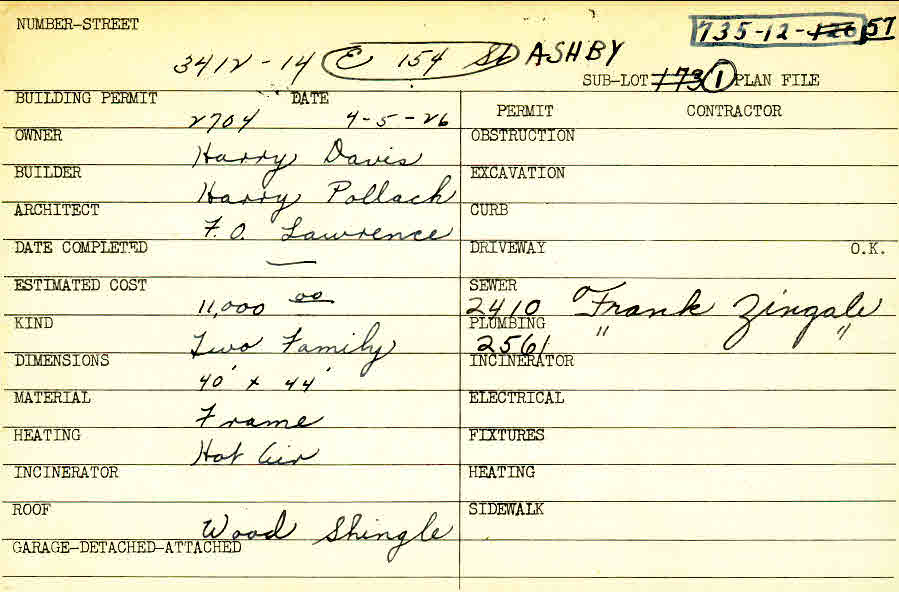 NUMBER-STREET 735-12-126 57
3412-14 E 154 St ASHBY
SUB-LOT 173 1 PLAN FILE
BUILDING PERMIT DATE
2704 4-5-26
PERMIT CONTRACTOR
OWNER Harry Davis
OBSTRUCTION
BUILDER Harry Pollack
EXCAVATION
ARCHITECT F. O. Lawrence
CURB
DATE COMPLETED —
DRIVEWAY O.K.
ESTIMATED COST 11,000 00
SEWER 2410 Frank Zingale
KIND Two Family
PLUMBING 2561 " "
DIMENSIONS 40' x 44'
INCINERATOR
MATERIAL Frame
ELECTRICAL
HEATING Hot Air
FIXTURES
INCINERATOR
HEATING
ROOF Wood Shingle
SIDEWALK
GARAGE-DETACHED-ATTACHED